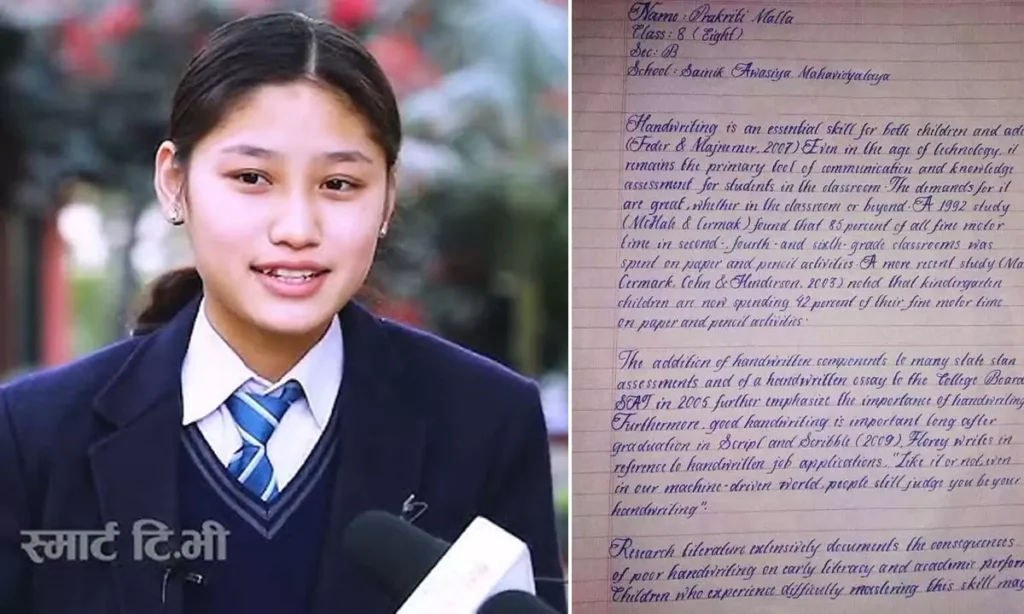 स्मार्ट टि.भी
Name : Prakriti Malla
Class : 8 (Eight)
Sec : B
School : Sainik Awasiya Mahavidyalaya
Handwriting is an essential skill for both children and adu
(Feder & Majnemer, 2007) Even in the age of technology, it
remains the primary tool of communication and knowledge
assessment for students in the classroom. The demands for it
are great, whether in the classroom or beyond. A 1992 study
(McHale & Cermak) found that 85 percent of all fine motor
time in second-, fourth- and sixth-grade classrooms was
spent on paper and pencil activities. A more recent study (Ma
Cermark, Cohn & Henderson, 2003) noted that kindergarten
children are now spending 42 percent of their fine motor time
on paper and pencil activities.
The addition of handwritten components to many state stan
assessments and of a handwritten essay to the College Board
SAT in 2005 further emphasize the importance of handwriting
Furthermore, good handwriting is important long after
graduation in Script and Scribble (2009), Florey writes in
reference to handwritten job applications, "Like it or not, even
in our machine-driven world, people still judge you by your
handwriting".
Research literature extensively documents the consequences
of poor handwriting on early literacy and academic perform
Children who experience difficulty mastering this skill may